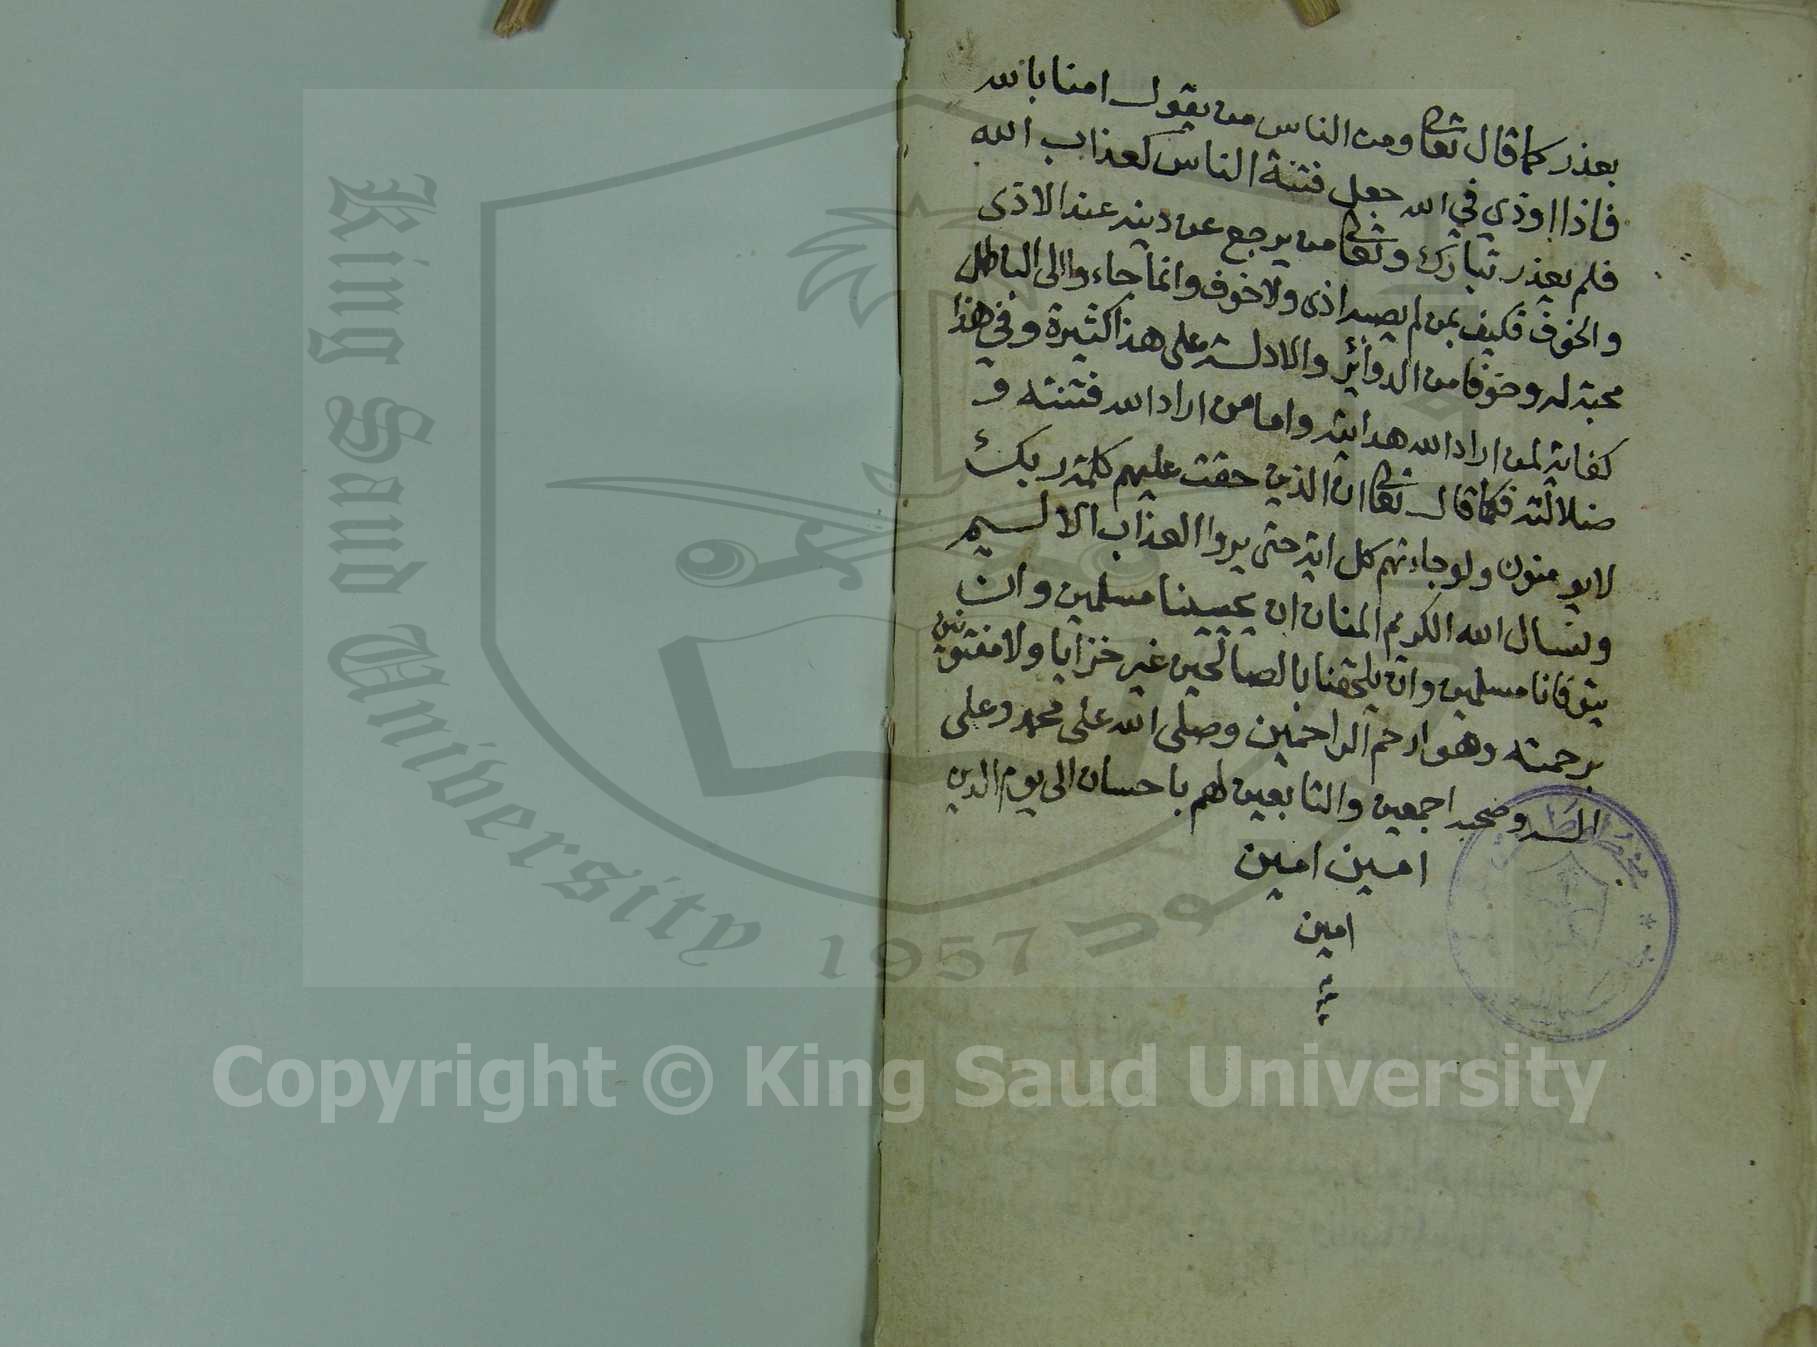 بعذر كما قال تعالى ومن الناس من يقول امنا بالله
فاذا اوذي في الله جعل فتنة الناس كعذاب الله
فلم يعذر تبارك وتعالى من يرجع عن دينه عند الاذى
والخوف فكيف بمن لم يصبه اذى ولا خوف وانما جاءوا الى الباطل
محبة له وخوفا من الدوائر والادلة على هذا كثيرة وفي هذا
كفاية لمن اراد الله هدايته واما من اراد الله فتنته و
ضلالته فكما قال تعالى ان الذين حقت عليهم كلمة ربك
لا يومنون ولو جاءتهم كل اية حتى يروا العذاب الاليم
ونسال الله الكريم المنان ان يحيينا مسلمين وان
يتوفانا مسلمين وان يلحقنا بالصالحين غير خزايا ولا مفتونين
برحمته وهو ارحم الراحمين وصلى الله على محمد وعلى
اله وصحبه اجمعين والتابعين لهم باحسان الى يوم الدين
امين امين
امين
King Saud University
1957
Copyright © King Saud University